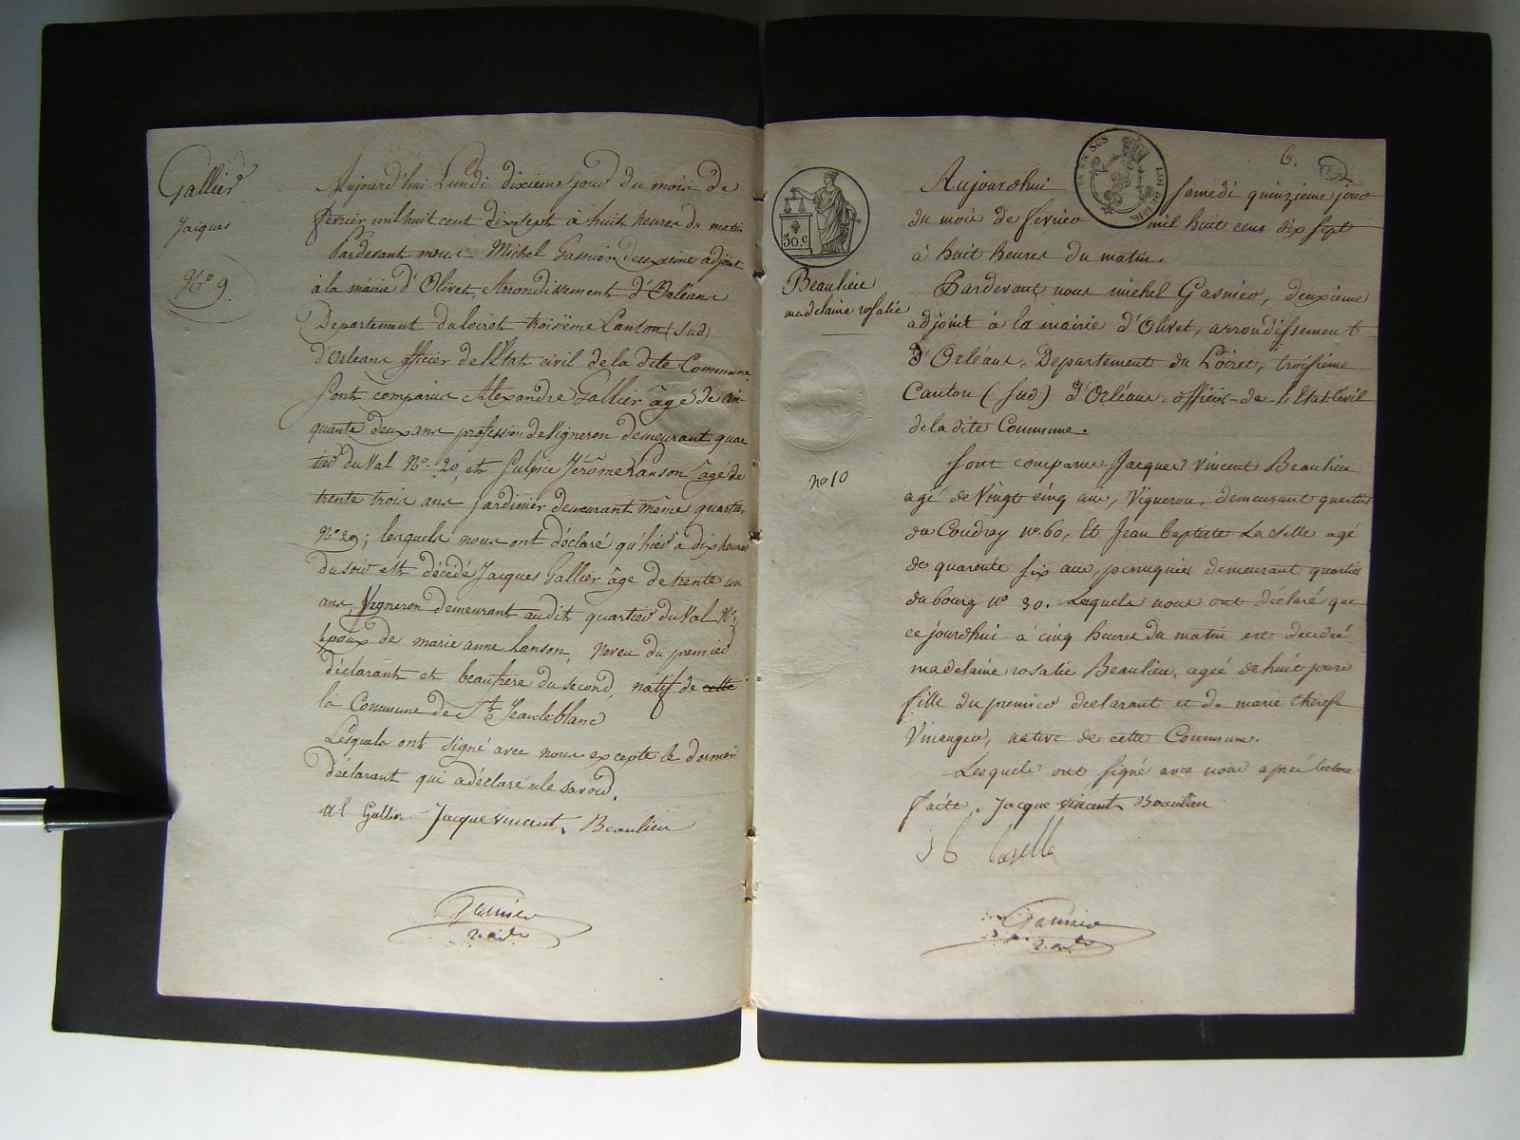 Gallier
Jacques
No 9.
Aujourd'hui Lundi dixieme jour du mois de
fevrier mil huit cent dix sept à huit heures du matin
Pardevant nous Michel Gasnier deuxieme adjoint
à la mairie d'Olivet, Arrondissement d'Orléans
Departement du loiret troisième Canton (sud)
d'Orleans officier de l'Etat civil de la dite Commune
Sont comparus Alexandre Gallier âgé de cin
quante deux ans profession de Vigneron demeurant quar
tier du Val No. 20, et Sulpice Jérôme Lanson âgé de
trente trois ans Jardinier demeurant même quartier
No 29; lesquels nous ont déclaré qu'hier à dix heures
du soir est décédé Jacques Gallier âge de trente un
ans, Vigneron demeurant audit quartier du Val No
époux de marie anne Lanson, neveu du premier
déclarant et beaufrere du second, natif de cette
la Commune de St Jean le blanc
Lesquels ont signé avec nous excepté le dernier
déclarant qui a déclaré ne le savoir.
al Gallier Jacque vincent Beaulieu
Gasnier
2. adt
6.
30.c
Aujourdhui samedi quinzieme jour
du mois de fevrier mil huit cens dix sept
à huit heures du matin.
Beaulieu
madelaine rosalie
no 10
Pardevant nous michel Gasnier, deuxieme
adjoint à la mairie d'Olivet, arrondissement
d'Orléans, Departement du Loiret, troisieme
Canton (sud) d'Orléans officier de l'Etat Civil
de la dite Commune.
Sont comparus Jacques Vincent Beaulieu
agé de Vingt cinq ans, Vigneron, demeurant quartier
du Coudray no. 60, Et Jean baptiste Laselle agé
de quarente six ans, peruquier demeurant quartier
du bourg no 30. Lesquels nous ont déclaré que
ce jourdhui à cinq heures du matin est decedée
madelaine rosalie Beaulieu, agée de huit jours
fille du premier declarant et de marie therese
native de cette Commune.
Lesquels ont signé avec nous après lecture
faite. Jacque vincent Beaulieu
J b laselle
Gasnier
2. adt